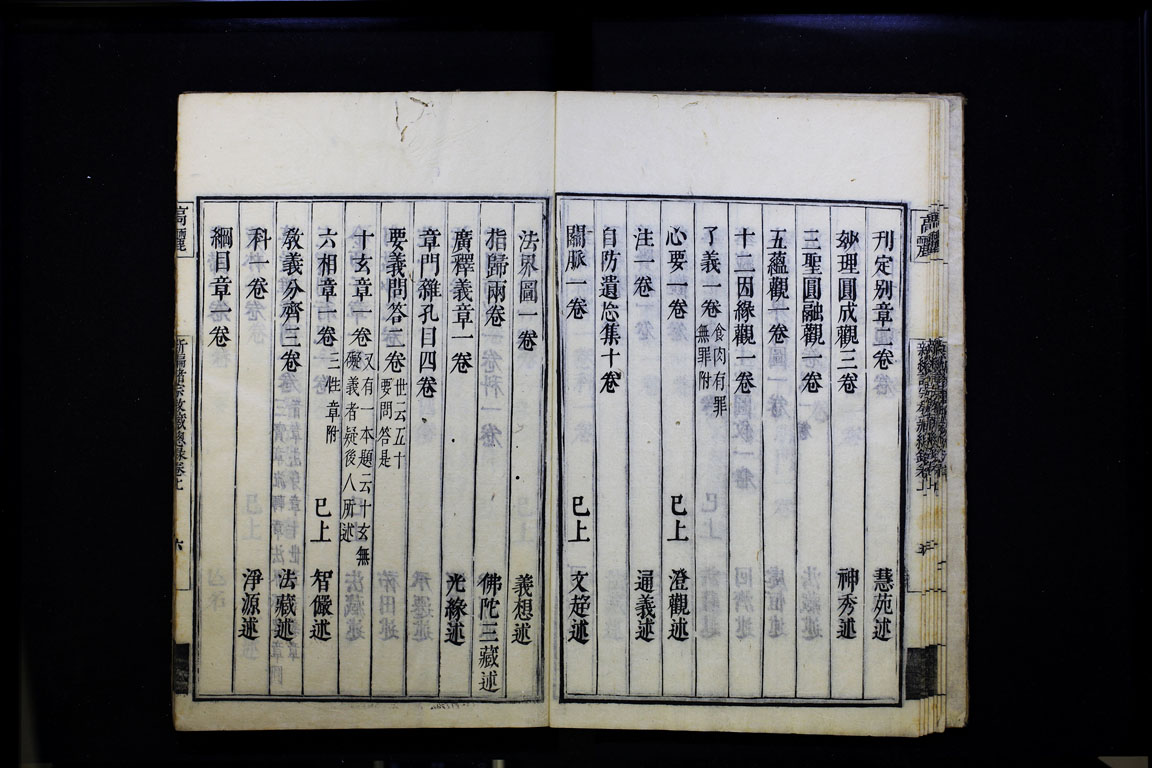 刋定别章二卷 慧苑述
妙理圓成觀三卷 神秀述
三聖圓融觀一卷
五蘊觀一卷
十二因緣觀一卷
了義一卷 食肉有罪無罪附
心要一卷 已上 澄觀述
注一卷 通義述
自防遺忘集十卷
關脈一卷 已上 文超述
法界圖一卷 義想述
指歸兩卷 佛陀三藏述
廣釋義章一卷 光緣述
章門雜孔目四卷
要義問答二卷 世云五十要問答是
十玄章一卷 又有一本題云十玄無礙義者疑後人所述
六相章一卷 三性章附 已上 智儼述
教義分齊三卷 法藏述
科一卷 淨源述
綱目章一卷
高麗
新編諸宗教藏總錄卷上
六